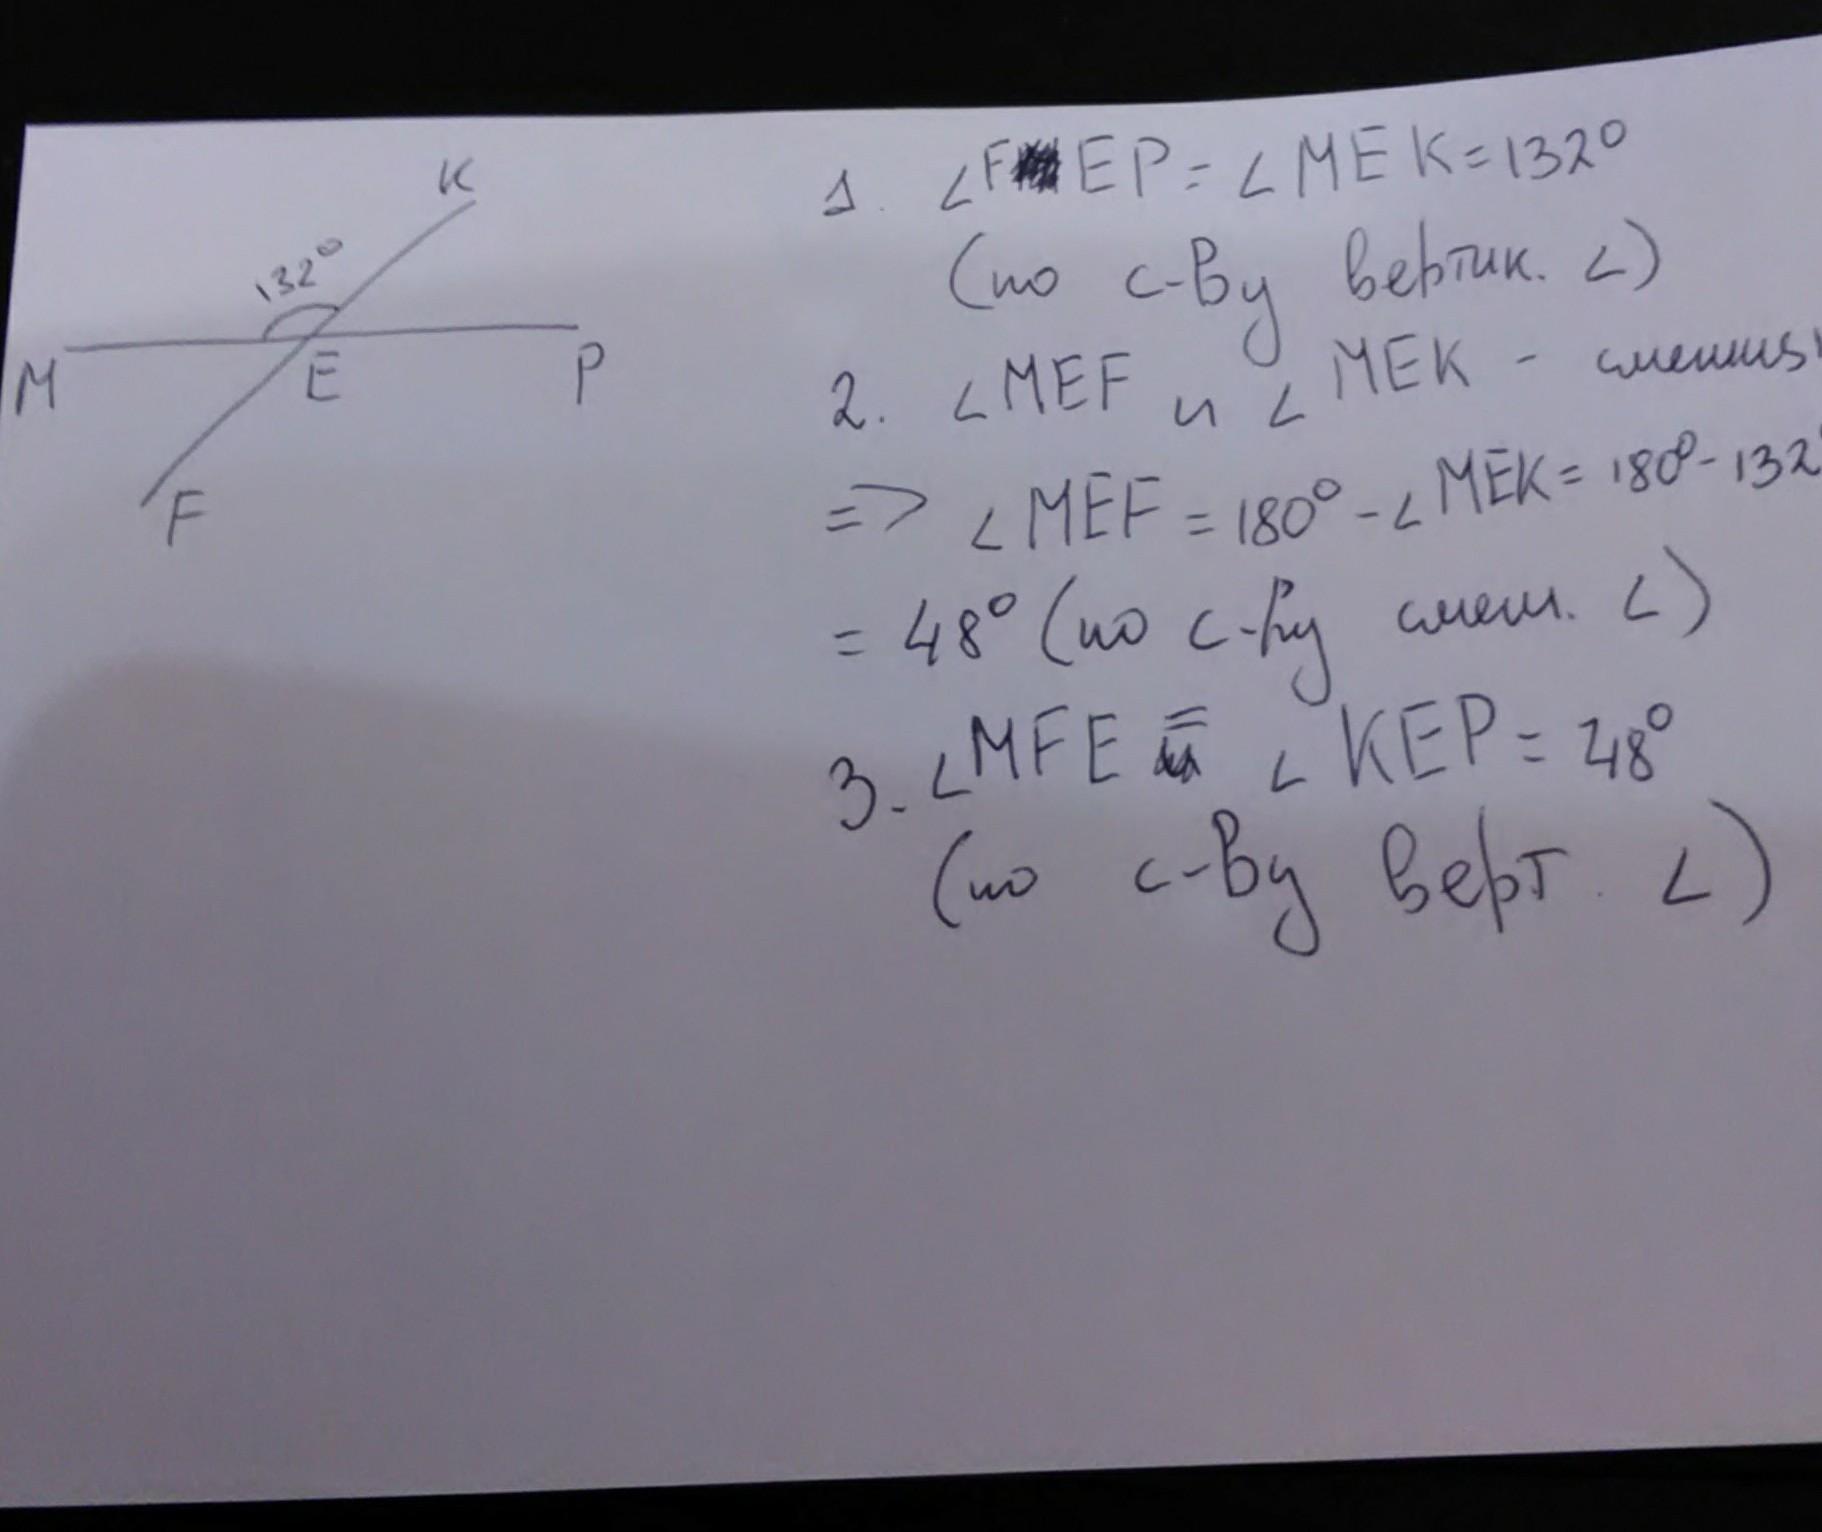 K
132°
M
E
P
F
1. ∠FEP = ∠MEK = 132°
(по с-ву вертик. ∠)
2. ∠MEF и ∠MEK - смежны
=> ∠MEF = 180° - ∠MEK = 180° - 132°
= 48° (по с-ву смеж. ∠)
3. ∠MFE = ∠KEP = 48°
(по с-ву верт. ∠)